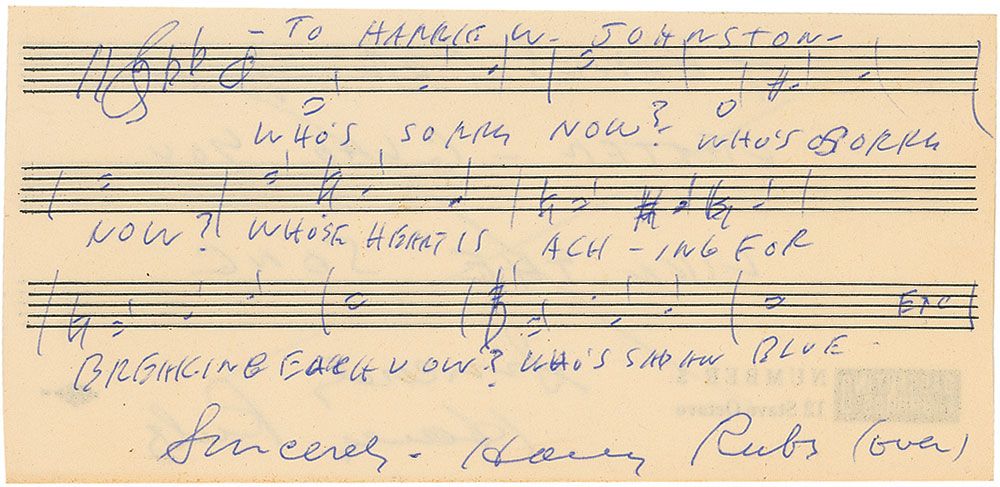 - TO HARRIE W. JOHNSTON -
WHO'S SORRY NOW? WHO'S SORRY
NOW? WHOSE HEART IS ACH-ING FOR
ETC
BREAKING EACH VOW? WHO'S SAD AN BLUE -
Sincerely - Harry Ruby (over)
NUMBER
12 Stave Octavo